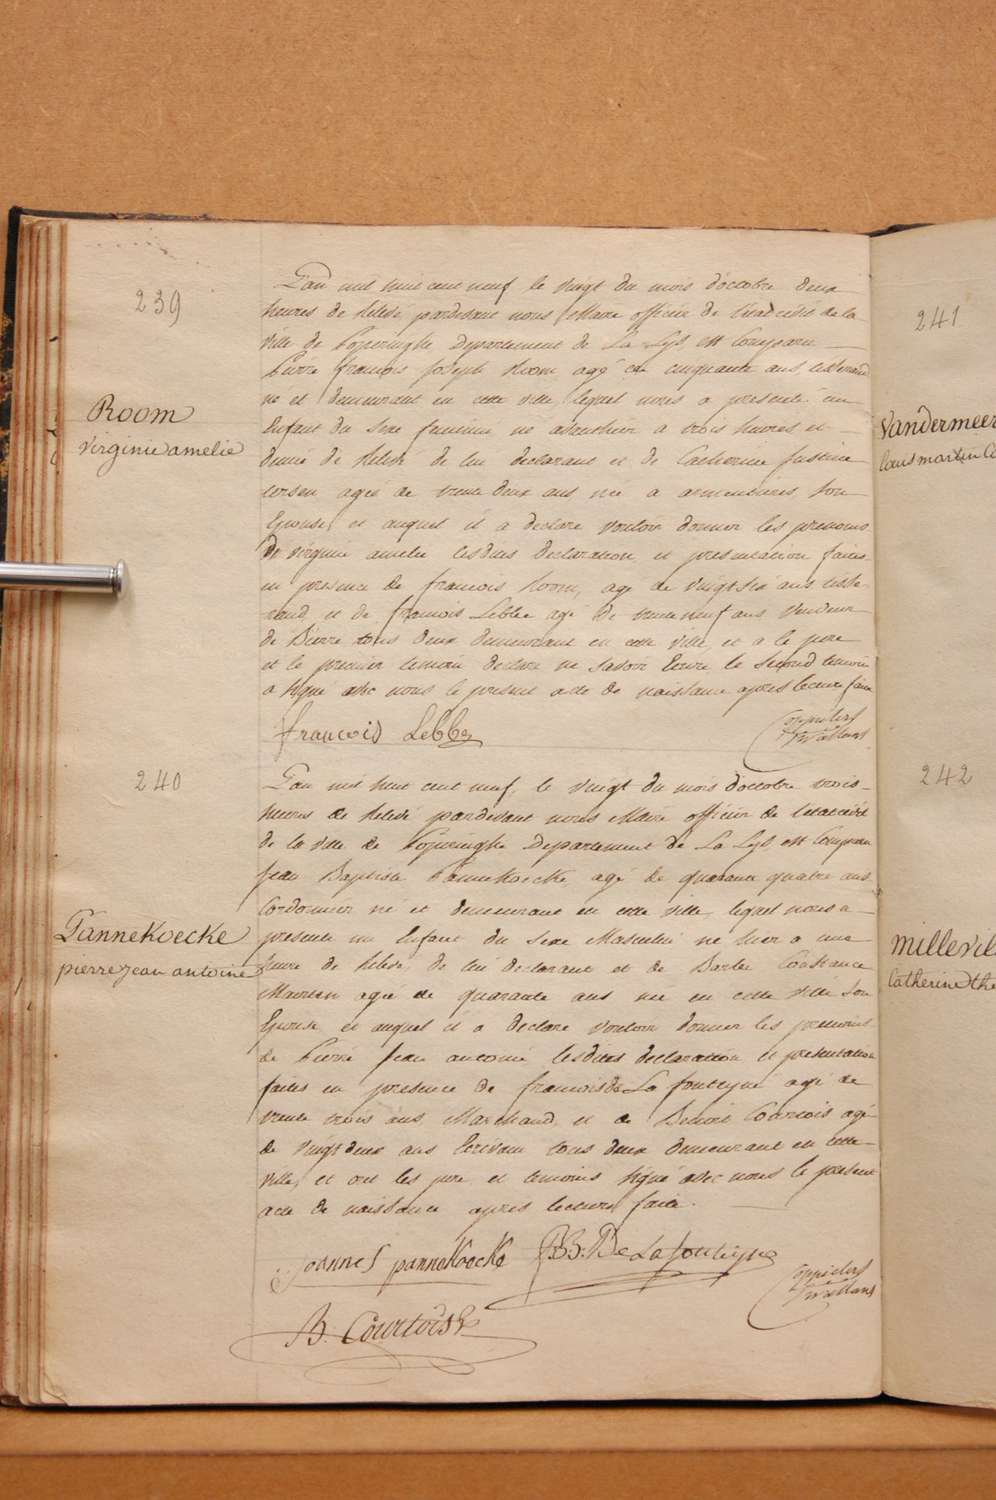 239
Room
virginie amelie
L'an mil huit cent neuf le vingt du mois d'octobre deux
heures de Relevé pardevant nous Maire officier de l'etat civil de la
ville de Poperinghe Departement de La Lys est Comparu
Pierre francois Joseph Room agé de cinquante ans, tisserand
né et demeurant en cette ville, lequel nous a presenté un
Enfant du Sexe feminin né avanthier a trois heures et
demie de Relevé de lui declarant et de Catherine Justine
agée de trente deux ans née a armentieres Son
Epouse, et auquel il a declaré vouloir donner les prenoms
De virginie amelie lesdites declaration et presentation faites
en presence de francois Room, agé de vingt six ans tisse-
rand, et de francois Lebbe agé de trente neuf ans vendeur
de Bierre tous deux demeurant en cette ville, et a le pere
et le premier temoin declaré ne savoir Ecrire le Second temoin
a signé avec nous le present acte de naissance apres lecture faite
francois Lebbe
240
Pannekoecke
pierre jean antoine
L'an mil huit cent neuf, le vingt du mois d'octobre trois
heures de Relevé pardevant nous Maire officier de l'etat civil
de la ville de Poperinghe Departement de La Lys est Comparu
Jean Baptiste Pannekoecke agé de quarante quatre ans
Cordonnier né et demeurant en cette ville, lequel nous a
presenté un Enfant du Sexe Masculin né hier a une
heure de Relevé, de lui declarant et de Barbe Constance
agée de quarante ans née en cette ville Son
Epouse et auquel il a declaré vouloir donner les prenoms
de Pierre Jean antoine lesdites declaration et presentation
faites en presence de francois De La fonteyne agé de
trente trois ans Marchand, et de Benoit Courtois agé
de vingt deux ans Ecrivain tous deux demeurant en cette
ville, et ont les pere et temoins signé avec nous le present
acte de naissance apres lecture faite.
joannes pannekoecke
De La fonteyne
B. Courtois
241
Vandermeer
louis martin
242
Millevil
Catherine the